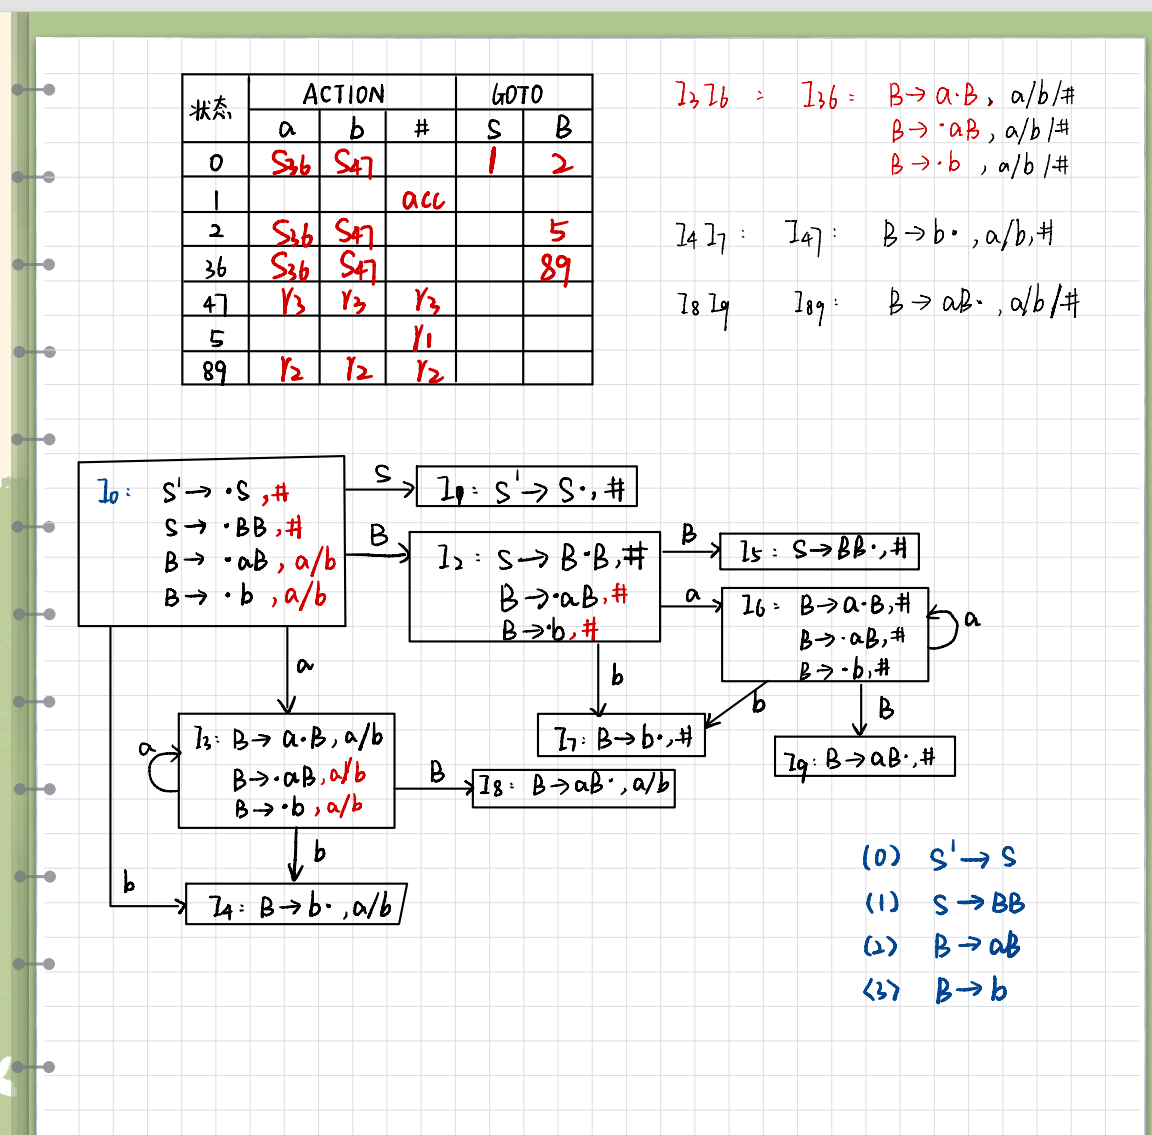 状态 ACTION GOTO
a b # S B
0 S36 S47 1 2
1 acc
2 S36 S47 5
36 S36 S47 89
47 r3 r3 r3
5 r1
89 r2 r2 r2
I3 I6 : I36: B→a·B, a/b/#
B→·aB, a/b/#
B→·b, a/b/#
I4 I7: I47: B→b·, a/b,#
I8 I9 I89: B→aB·, a/b/#
I0: S'→·S,#
S→·BB,#
B→·aB, a/b
B→·b, a/b
S
I1: S'→S·,#
B
I2: S→B·B,#
B→·aB,#
B→·b,#
B
I5: S→BB·,#
a
I6: B→a·B,#
B→·aB,#
B→·b,#
a
b
b
B
I7: B→b·,#
I9: B→aB·,#
a
I3: B→a·B, a/b
B→·aB, a/b
B→·b, a/b
a
B
I8: B→aB·, a/b
b
b
I4: B→b·, a/b
(0) S'→S
(1) S→BB
(2) B→aB
(3) B→b